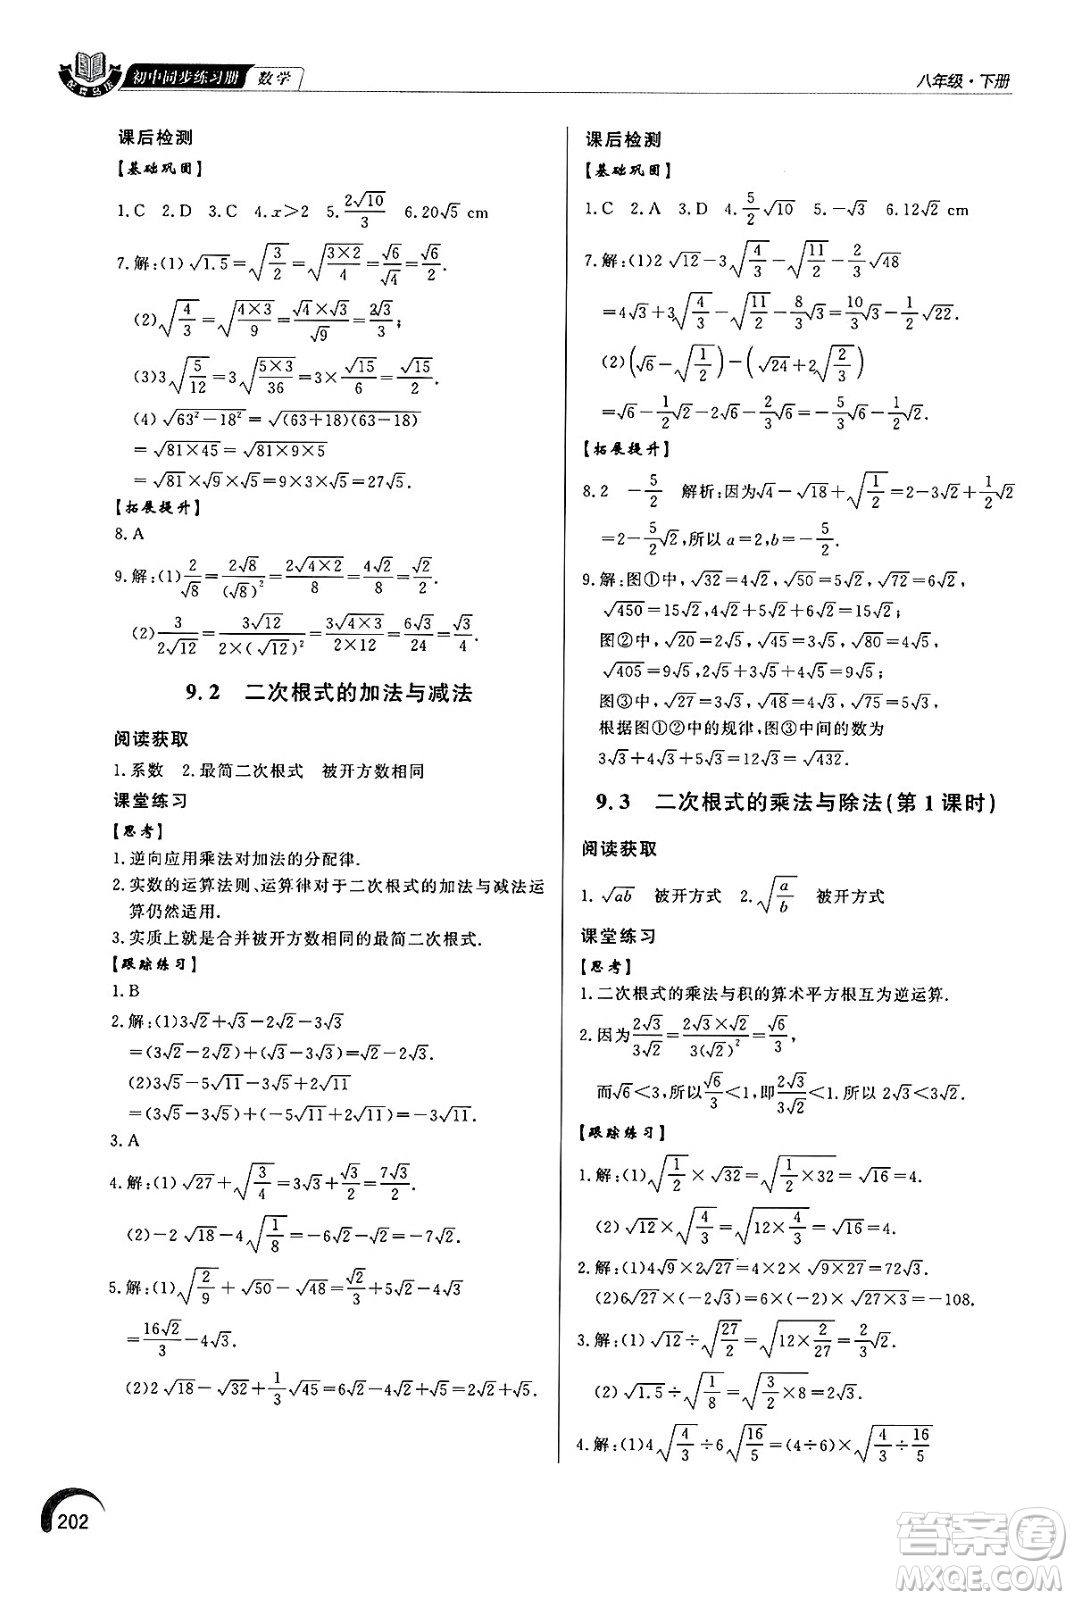 初中同步练习册 数学
八年级·下册
课后检测
【基础巩固】
1. C 2. D 3. C 4. x>2 5. 2√10/3 6. 20√5 cm
7. 解:(1)√1.5=√(3/2)=√((3×2)/4)=√6/√4=√6/2.
(2)√(4/3)=√((4×3)/9)=(√4×√3)/√9=2√3/3;
(3)3√(5/12)=3√((5×3)/36)=3×√15/6=√15/2.
(4)√(63²-18²)=√((63+18)(63-18))
=√(81×45)=√(81×9×5)
=√81×√9×√5=9×3×√5=27√5.
【拓展提升】
8. A
9. 解:(1)2/√8=2√8/(√8)²=2√(4×2)/8=4√2/8=√2/2.
(2)3/(2√12)=3√12/(2×(√12)²)=3√(4×3)/(2×12)=6√3/24=√3/4.
9.2 二次根式的加法与减法
阅读获取
1. 系数 2. 最简二次根式 被开方数相同
课堂练习
【思考】
1. 逆向应用乘法对加法的分配律.
2. 实数的运算法则、运算律对于二次根式的加法与减法运
算仍然适用.
3. 实质上就是合并被开方数相同的最简二次根式.
【跟踪练习】
1. B
2. 解:(1)3√2+√3-2√2-3√3
=(3√2-2√2)+(√3-3√3)=√2-2√3.
(2)3√5-5√11-3√5+2√11
=(3√5-3√5)+(-5√11+2√11)=-3√11.
3. A
4. 解:(1)√27+√(3/4)=3√3+√3/2=7√3/2.
(2)-2√18-4√(1/8)=-6√2-√2=-7√2.
5. 解:(1)√(2/9)+√50-√48=√2/3+5√2-4√3
=16√2/3-4√3.
(2)2√18-√32+1/3√45=6√2-4√2+√5=2√2+√5.
202
课后检测
【基础巩固】
1. C 2. A 3. D 4. 5/2√10 5. -√3 6. 12√2 cm
7. 解:(1)2√12-3√(4/3)-√(11/2)-2/3√48
=4√3+3√(4/3)-√(11/2)-8/3√3=10/3√3-1/2√22.
(2)(√6-√(1/2))-(√24+2√(2/3))
=√6-1/2√2-2√6-2/3√6=-5/3√6-1/2√2.
【拓展提升】
8. 2 -5/2 解析:因为√4-√18+√(1/2)=2-3√2+1/2√2
=2-5/2√2,所以a=2,b=-5/2.
9. 解:图①中,√32=4√2,√50=5√2,√72=6√2,
√450=15√2,4√2+5√2+6√2=15√2;
图②中,√20=2√5,√45=3√5,√80=4√5,
√405=9√5,2√5+3√5+4√5=9√5;
图③中,√27=3√3,√48=4√3,√75=5√3,
根据图①②中的规律,图③中间的数为
3√3+4√3+5√3=12√3=√432.
9.3 二次根式的乘法与除法(第1课时)
阅读获取
1. √ab 被开方式 2. √(a/b) 被开方式
课堂练习
【思考】
1. 二次根式的乘法与积的算术平方根互为逆运算.
2. 因为2√3/3√2=(2√3×√2)/3(√2)²=√6/3,
而√6<3,所以√6/3<1,即2√3/3√2<1,所以2√3<3√2.
【跟踪练习】
1. 解:(1)√(1/2)×√32=√(1/2×32)=√16=4.
(2)√12×√(4/3)=√(12×4/3)=√16=4.
2. 解:(1)4√9×2√27=4×2×√(9×27)=72√3.
(2)6√27×(-2√3)=6×(-2)×√(27×3)=-108.
3. 解:(1)√12÷√(27/2)=√(12×2/27)=2/3√2.
(2)√1.5÷√(1/8)=√(3/2×8)=2√3.
4. 解:(1)4√(4/3)÷6√(16/5)=(4÷6)×√(4/3÷16/5)
答案卷
MXQE.COM